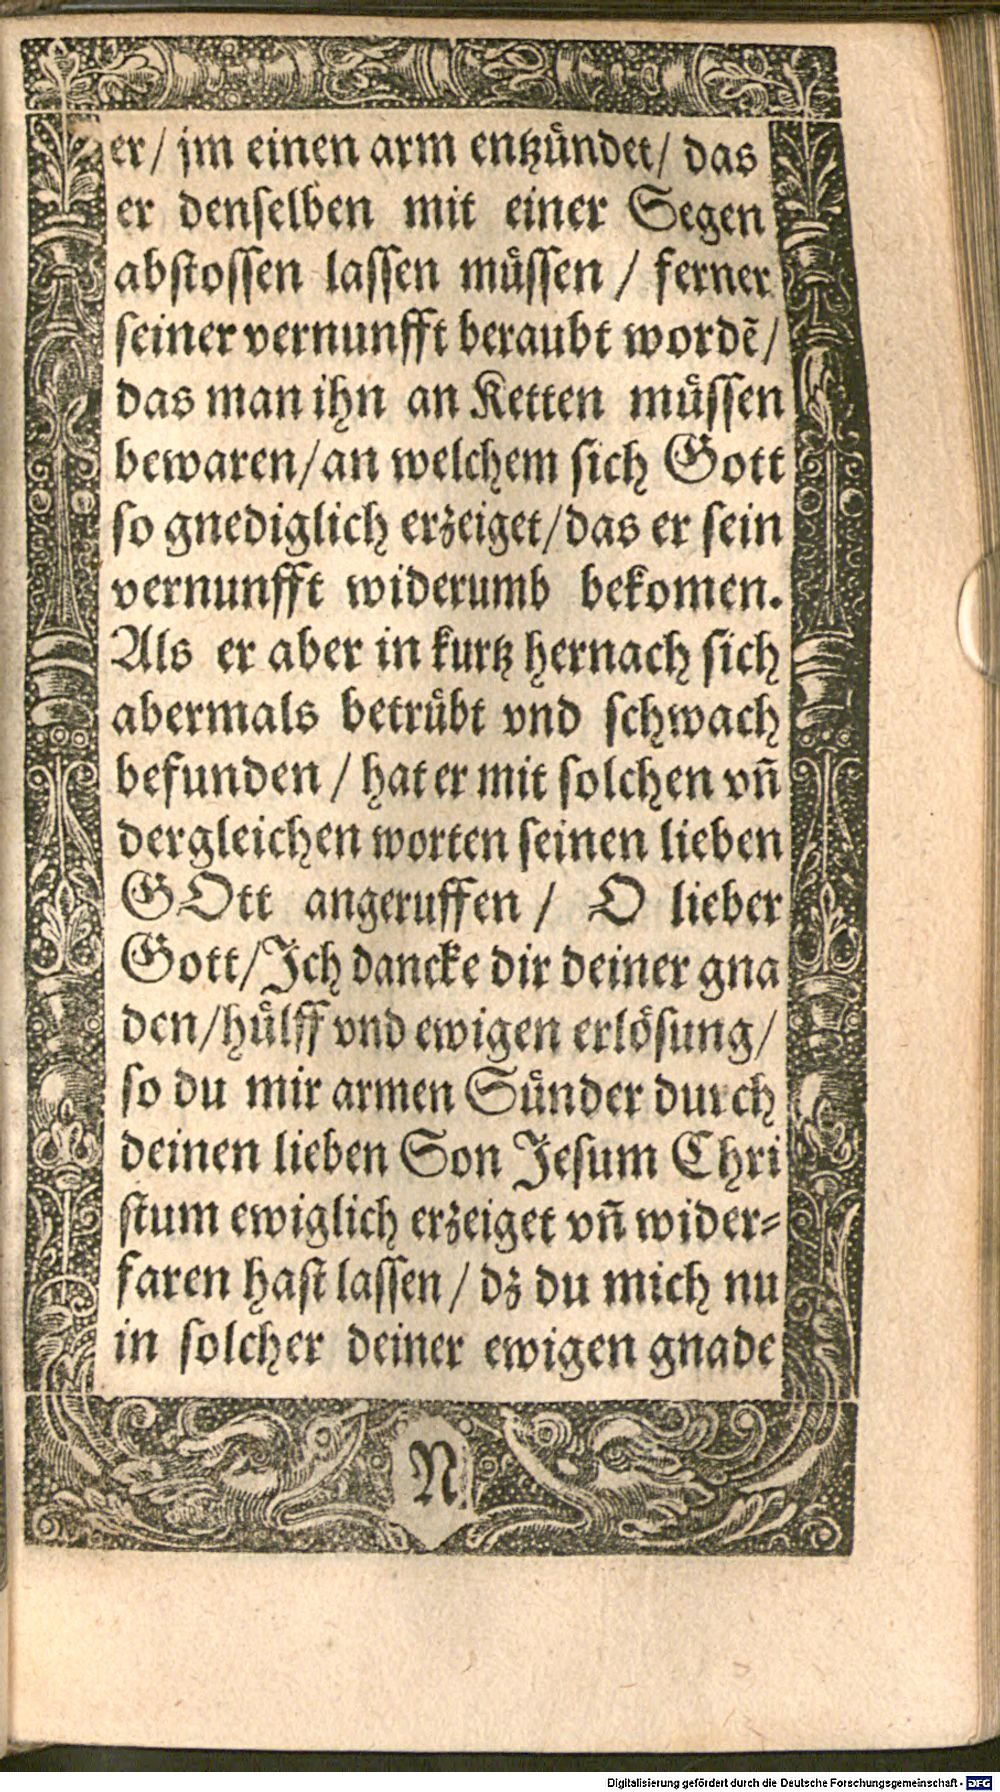 er/ jm einen arm entzündet/ das
er denselben mit einer Segen
abstossen lassen müssen / ferner
seiner vernunfft beraubt wordẽ/
das man ihn an Ketten müssen
bewaren/an welchem sich Gott
so gnediglich erzeiget/das er sein
vernunfft widerumb bekomen.
Als er aber in kurtz hernach sich
abermals betrübt vnd schwach
befunden / hat er mit solchen vñ
dergleichen worten seinen lieben
GOtt angeruffen / O lieber
Gott/Ich dancke dir deiner gna
den/hülff vnd ewigen erlösung/
so du mir armen Sünder durch
deinen lieben Son Jesum Chri
stum ewiglich erzeiget vñ wider-
faren hast lassen / dz du mich nu
in solcher deiner ewigen gnade
N
Digitalisierung gefördert durch die Deutsche Forschungsgemeinschaft - DFG